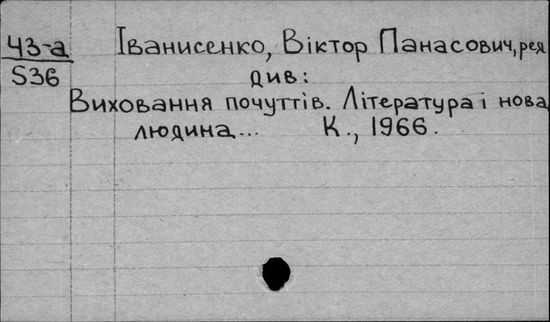 Ч3-а Іванисенко, Віктор Панасович, ред
S36 див:
Виховання почуттів. Література і нова
людина... К., 1966.